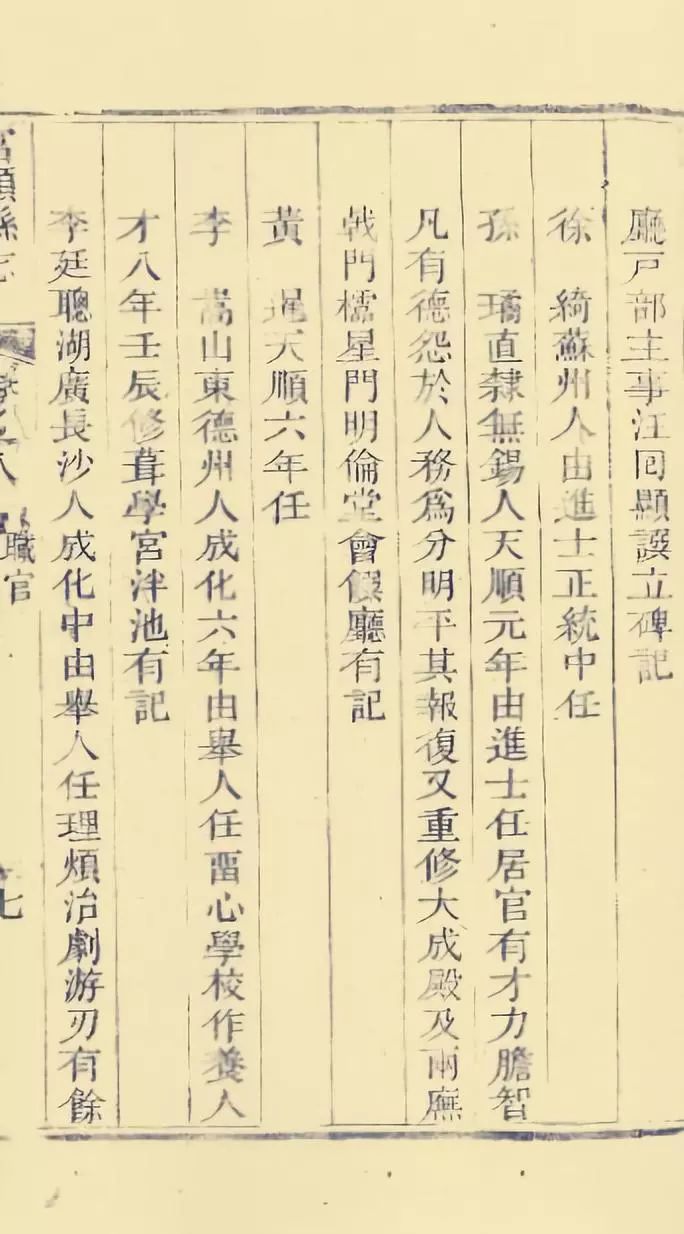 廳戶部主事江回顯譔立碑記
徐　綺蘇州人由進士正統中任
孫　璚直隸無錫人天順元年由進士任居官有才力膽智
凡有德怨於人務為分明平其報復又重修大成殿及兩廡
戟門櫺星門明倫堂會饌廳有記
黃　暹天順六年任
李　嵩山東德州人成化六年由舉人任畱心學校作養人
才八年壬辰修葺學宮泮池有記
李廷聰湖廣長沙人成化中由舉人任理煩治劇游刃有餘
富順縣志
卷之八
職官
七